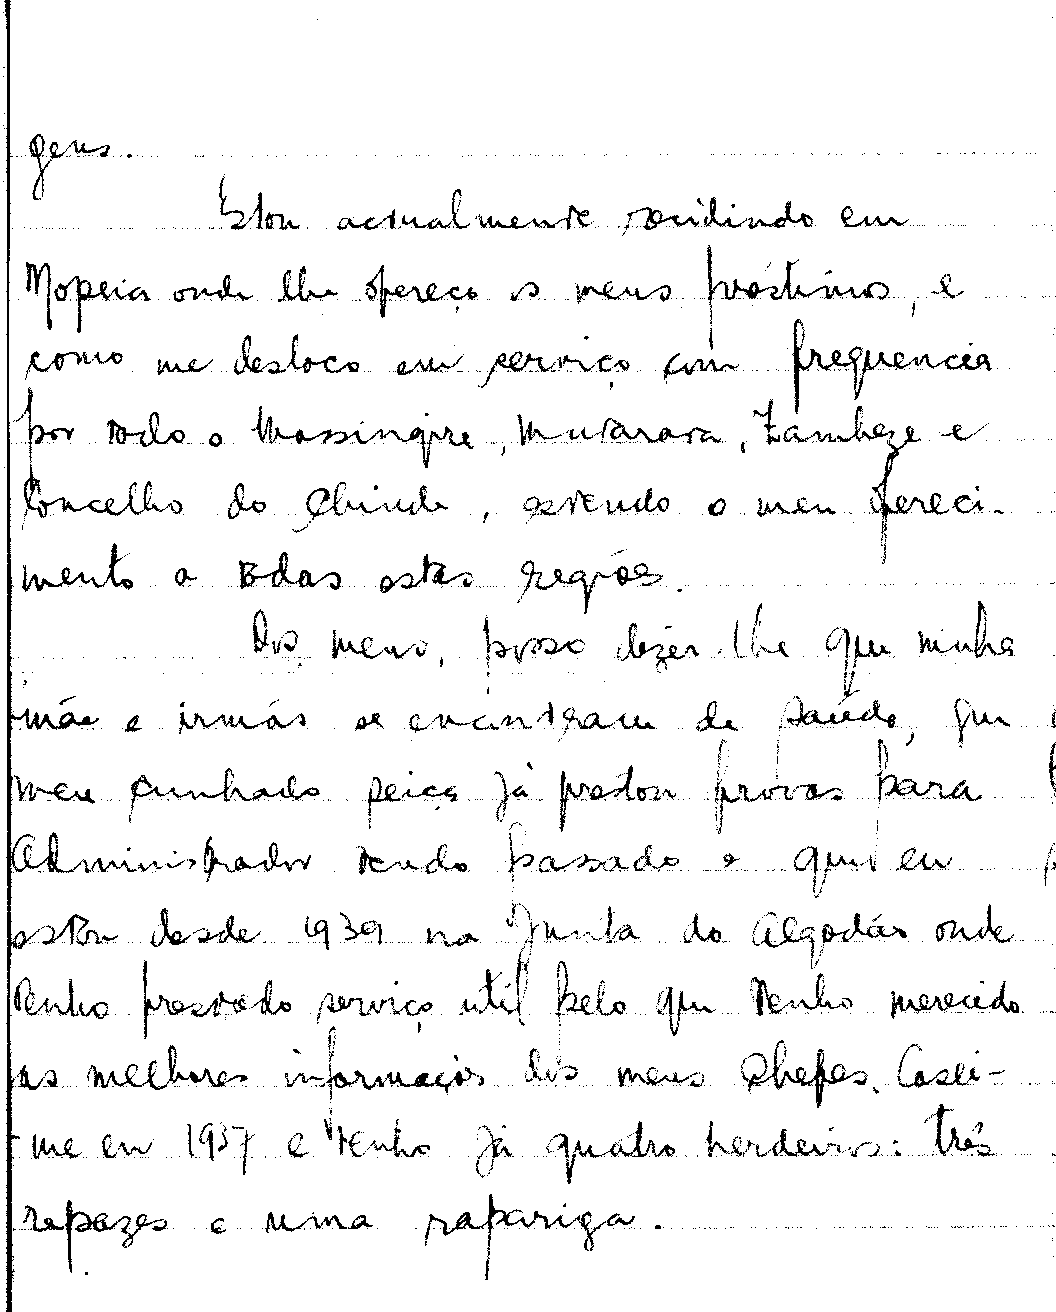 gens.
Estou actualmente residindo em
Mopeia onde lhe ofereço os meus préstimos, e
como me desloco em serviço com frequencia
por todo o Massingire, Mutarara, Zambeze e
Concelho do Chinde, estendo o meu ofereci-
mento a todas estas regiões.
Dos meus, posso dizer-lhe que minha
mãe e irmãs se encontram de saúde, que
meu cunhado já prestou provas para
Administrador tendo passado e que eu
estou desde 1939 na Junta do Algodão onde
tenho prestado serviço util pelo que tenho merecido
as melhores informações dos meus Chefes. Casei-
-me em 1937 e tenho já quatro herdeiros: três
rapazes e uma rapariga.